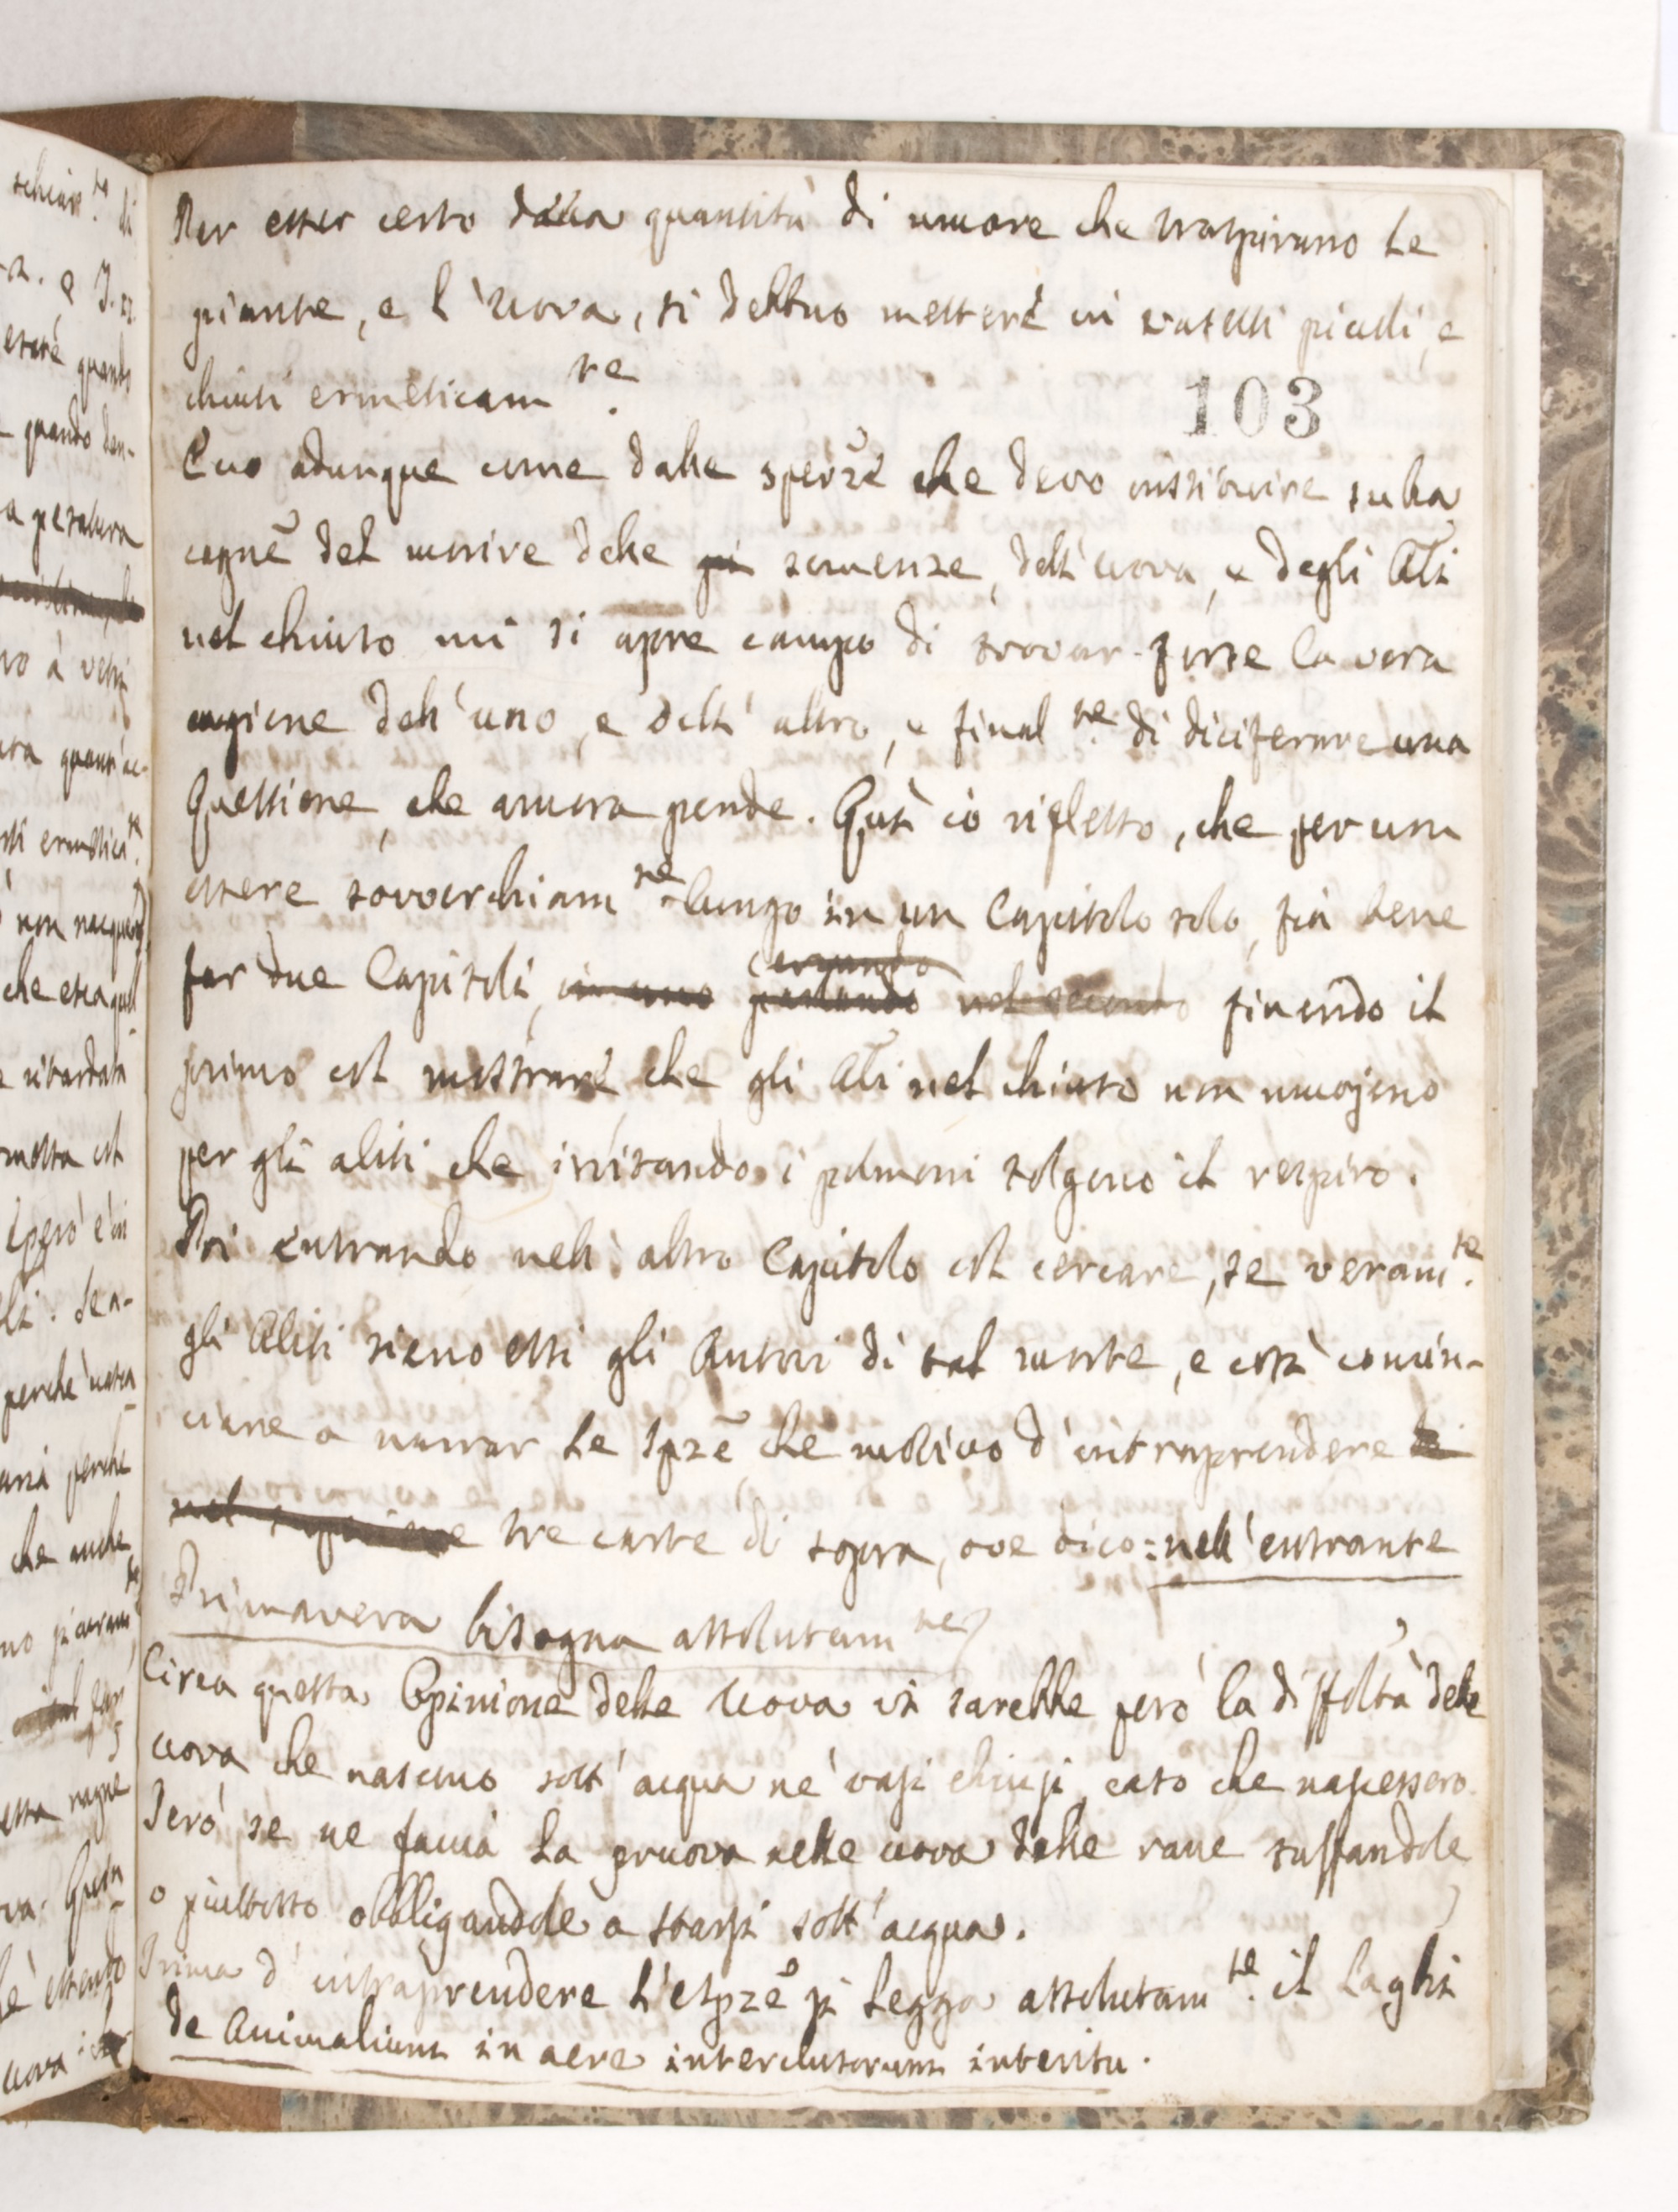 Per esser certo della quantità di umore che traspirano le
piante, e l'uova, si debbuo mettere in vaselli piccoli, e
chiusi ermeticam.te
103
Ecco adunque come dalle sperzē che devo instituire sulla
cagnē del morire delle semenze, dell'uova, e degli Ali
nel chiuso mi si apre campo di trovar forse la vera
cagione dell'uno, e dell'altro, e final.te di diciferare una
Questione, che ancora pende. Quì io rifletto, che per non
essere soverchiam.te lungo in un Capitolo solo, fia bene
far due Capitoli, in uno parlando cercando nel secondo finendo il
primo col mostrare che gli Ali nel chiuso non muojono
per gli aliti che irritando i polmoni tolgono il respiro.
Poi entrando nell'altro Capitolo col cercare, se veram.te
gli Aliti sieno essi gli Autori di tal morte, e così comin-
ciare a narrar le spzē che motivo d'intraprendere
tre carte di sopra, ove dico: nell'entrante
Primavera bisogna assolutam.te
Circa questa Opinione delle Uova vi sarebbe però la diffoltà delle
uova che nascono sott'acqua ne' vasi chiusi, caso che nascessero.
Però se ne faccia la pruova nelle uova delle rane tuffandole
o piuttosto obbligandole a starsi sott'acqua.
Prima d'intraprendere l'espzē si legga assolutam.te il Laghi
de Animalium in aere interclusorum interitu.
schiar.te di
erate quando
quando den-
a pesatura
non nacquero
che essa quel
e ritardata
molta col
però è in
Se a-
perchè
perche
che anche
essa ragne
va. Questa
è essendo
uova